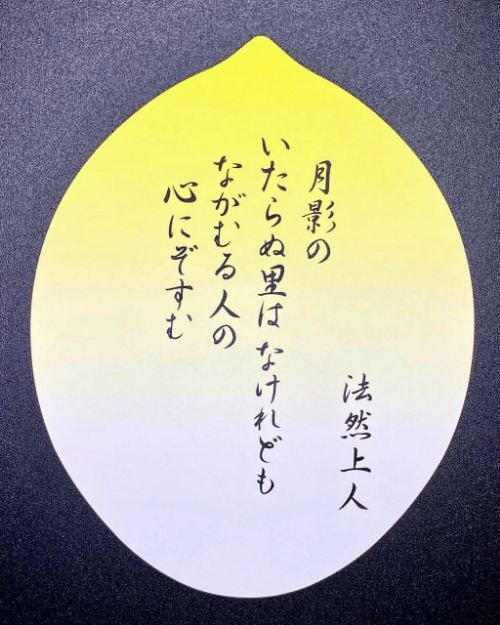 法然上人
月影の
いたらぬ里はなけれども
ながむる人の
心にぞすむ